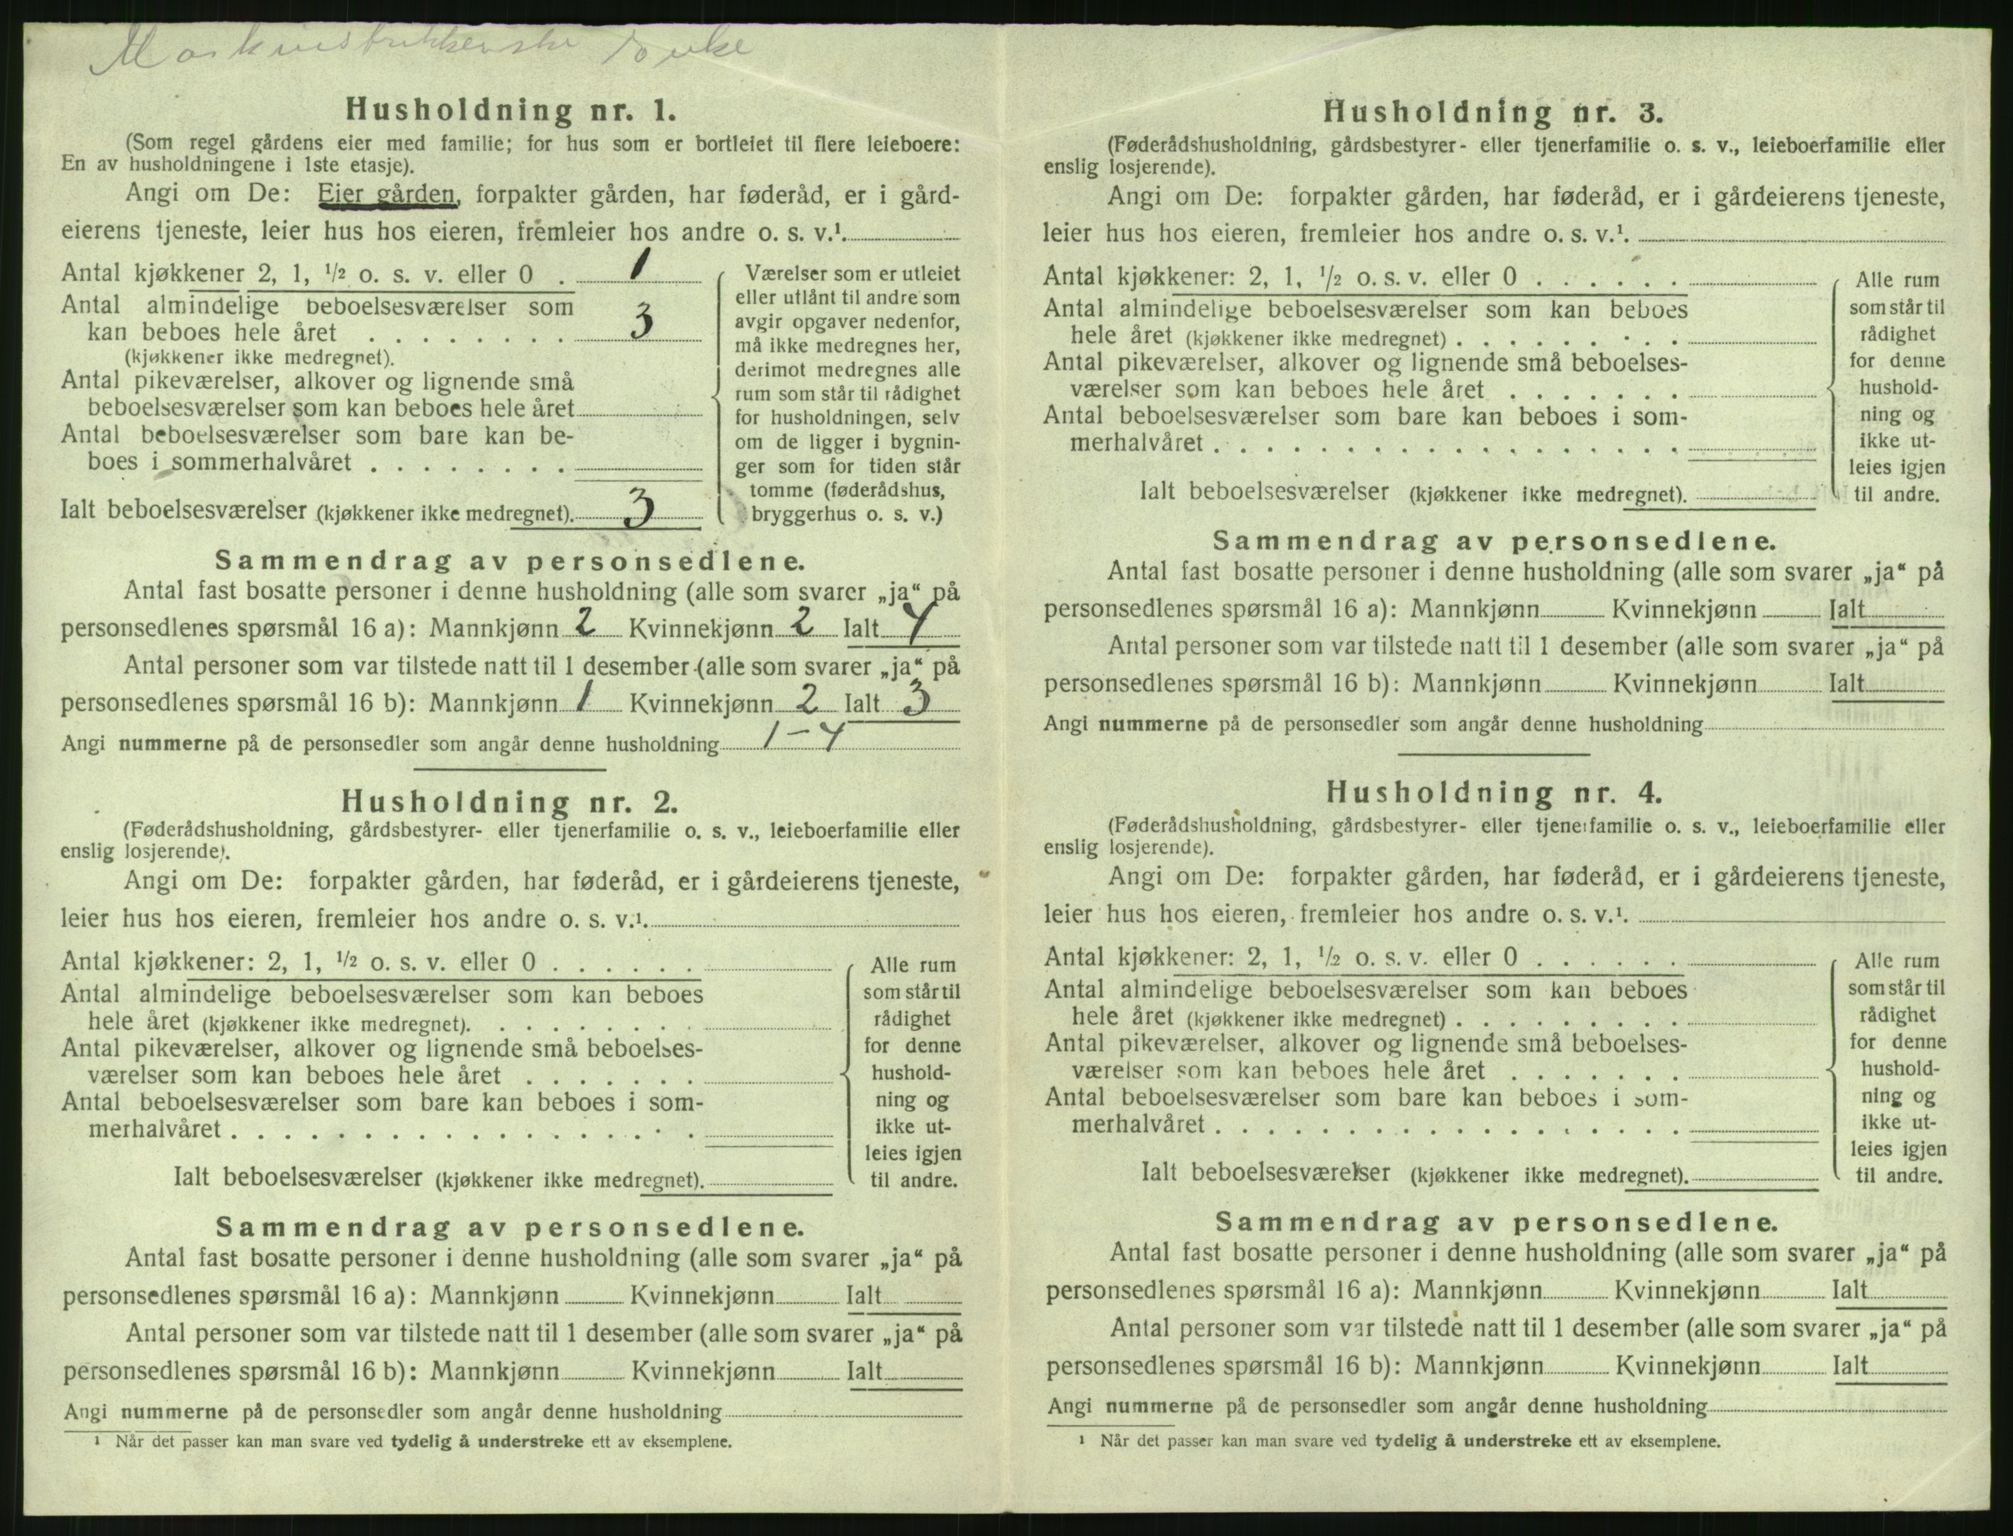 Husholdning nr. 1.
(Som regel gårdens eier med familie; for hus som er bortleiet til flere leieboere:
En av husholdningene i 1ste etasje).
Angi om De: Eier gården, forpakter gården, har føderåd, er i gård-
eierens tjeneste, leier hus hos eieren, fremleier hos andre o. s. v.¹.
Antal kjøkkener 2, 1, ½ o. s. v. eller 0 . 1
Antal almindelige beboelsesværelser som
kan beboes hele året . . . . . . . . 3
(kjøkkener ikke medregnet).
Antal pikeværelser, alkover og lignende små
beboelsesværelser som kan beboes hele året
Antal beboelsesværelser som bare kan be-
boes i sommerhalvåret . . . . . . . .
Ialt beboelsesværelser (kjøkkener ikke medregnet). 3
Værelser som er utleiet
eller utlånt til andre som
avgir opgaver nedenfor,
må ikke medregnes her,
derimot medregnes alle
rum som står til rådighet
for husholdningen, selv
om de ligger i bygnin-
ger som for tiden står
tomme (føderådshus,
bryggerhus o. s. v.)
Sammendrag av personsedlene.
Antal fast bosatte personer i denne husholdning (alle som svarer „ja“ på
personsedlenes spørsmål 16 a): Mannkjønn 2 Kvinnekjønn 2 Ialt 4
Antal personer som var tilstede natt til 1 desember (alle som svarer „ja“ på
personsedlenes spørsmål 16 b): Mannkjønn 1 Kvinnekjønn 2 Ialt 3
Angi nummerne på de personsedler som angår denne husholdning 1-4
Husholdning nr. 2.
(Føderådshusholdning, gårdsbestyrer- eller tjenerfamilie o. s. v., leieboerfamilie eller
enslig losjerende).
Angi om De: forpakter gården, har føderåd, er i gårdeierens tjeneste,
leier hus hos eieren, fremleier hos andre o. s. v.¹.
Antal kjøkkener: 2, 1, ½ o. s. v. eller 0 . . . . . .
Antal almindelige beboelsesværelser som kan beboes
hele året (kjøkkener ikke medregnet). . . . . . . . .
Antal pikeværelser, alkover og lignende små beboelses-
værelser som kan beboes hele året . . . . . . .
Antal beboelsesværelser som bare kan beboes i som-
merhalvåret . . . . . . . . . . . . . . . . . .
Ialt beboelsesværelser (kjøkkener ikke medregnet).
Alle rum
som står til
rådighet
for denne
hushold-
ning og
ikke ut-
leies igjen
til andre.
Sammendrag av personsedlene.
Antal fast bosatte personer i denne husholdning (alle som svarer „ja“ på
personsedlenes spørsmål 16 a): Mannkjønn Kvinnekjønn Ialt
Antal personer som var tilstede natt til 1 desember (alle som svarer „ja“ på
personsedlenes spørsmål 16 b): Mannkjønn Kvinnekjønn Ialt
Angi nummerne på de personsedler som angår denne husholdning
¹ Når det passer kan man svare ved tydelig å understreke ett av eksemplene.
Husholdning nr. 3.
(Føderådshusholdning, gårdsbestyrer- eller tjenerfamilie o. s. v., leieboerfamilie eller
enslig losjerende).
Angi om De: forpakter gården, har føderåd, er i gårdeierens tjeneste,
leier hus hos eieren, fremleier hos andre o. s. v.¹.
Antal kjøkkener: 2, 1, ½ o. s. v. eller 0 . . . . . .
Antal almindelige beboelsesværelser som kan beboes
hele året (kjøkkener ikke medregnet) . . . . . . . . .
Antal pikeværelser, alkover og lignende små beboelses-
værelser som kan beboes hele året . . . . . . .
Antal beboelsesværelser som bare kan beboes i som-
merhalvåret . . . . . . . . . . . . . . . . . .
Ialt beboelsesværelser (kjøkkener ikke medregnet).
Alle rum
som står til
rådighet
for denne
hushold-
ning og
ikke ut-
leies igjen
til andre.
Sammendrag av personsedlene.
Antal fast bosatte personer i denne husholdning (alle som svarer „ja“ på
personsedlenes spørsmål 16 a): Mannkjønn Kvinnekjønn Ialt
Antal personer som var tilstede natt til 1 desember (alle som svarer „ja“ på
personsedlenes spørsmål 16 b): Mannkjønn Kvinnekjønn Ialt
Angi nummerne på de personsedler som angår denne husholdning
Husholdning nr. 4.
(Føderådshusholdning, gårdsbestyrer- eller tjenerfamilie o. s. v., leieboerfamilie eller
enslig losjerende).
Angi om De: forpakter gården, har føderåd, er i gårdeierens tjeneste,
leier hus hos eieren, fremleier hos andre o. s. v.¹.
Antal kjøkkener: 2, 1, ½ o. s. v. eller 0 . . . . . .
Antal almindelige beboelsesværelser som kan beboes
hele året (kjøkkener ikke medregnet) . . . . . . . . .
Antal pikeværelser, alkover og lignende små beboelses-
værelser som kan beboes hele året . . . . . . .
Antal beboelsesværelser som bare kan beboes i som-
merhalvåret . . . . . . . . . . . . . . . . . .
Ialt beboelsesværelser (kjøkkener ikke medregnet).
Alle rum
som står til
rådighet
for denne
hushold-
ning og
ikke ut-
leies igjen
til andre.
Sammendrag av personsedlene.
Antal fast bosatte personer i denne husholdning (alle som svarer „ja“ på
personsedlenes spørsmål 16 a): Mannkjønn Kvinnekjønn Ialt
Antal personer som var tilstede natt til 1 desember (alle som svarer „ja“ på
personsedlenes spørsmål 16 b): Mannkjønn Kvinnekjønn Ialt
Angi nummerne på de personsedler som angår denne husholdning
¹ Når det passer kan man svare ved tydelig å understreke ett av eksemplene.